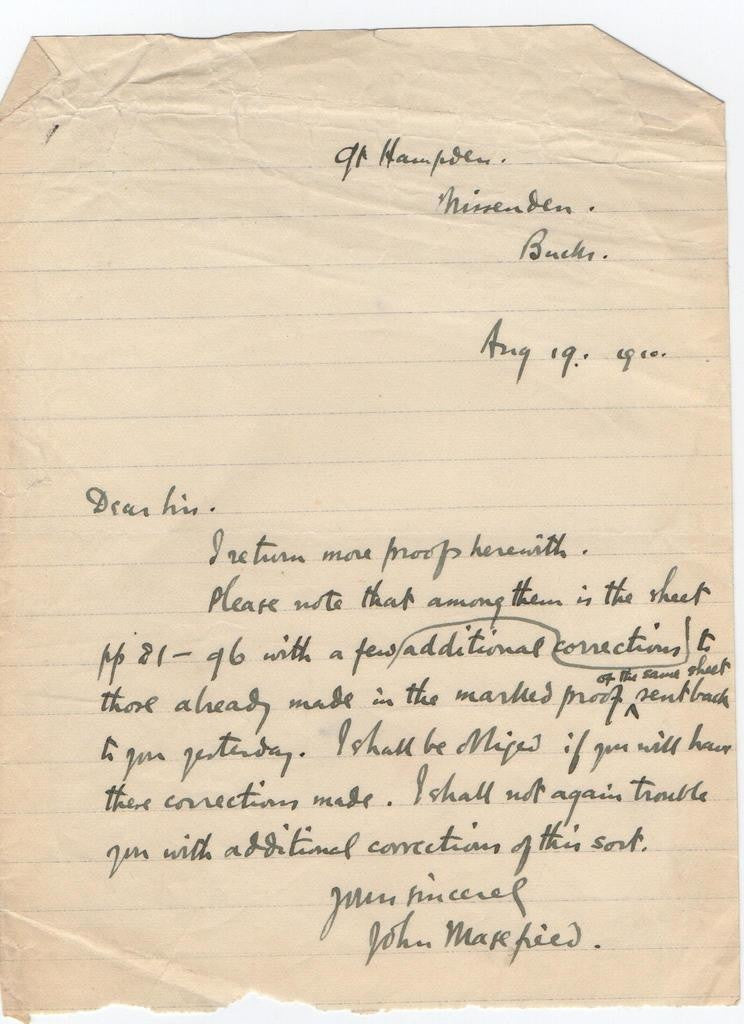 Gt Hampden.
Missenden.
Bucks.
Aug 19. 1910.
Dear Sir.
I return more proofs herewith.
Please note that among them is the sheet
pp 81 – 96 with a few additional corrections to
of the same sheet
those already made in the marked proof ^ sent back
to you yesterday. I shall be obliged if you will have
these corrections made. I shall not again trouble
you with additional corrections of this sort.
Yours sincerely
John Masefield.